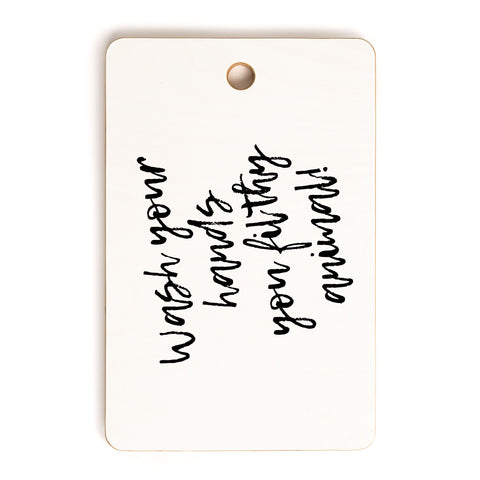 Wash your
hands
you filthy
animal!